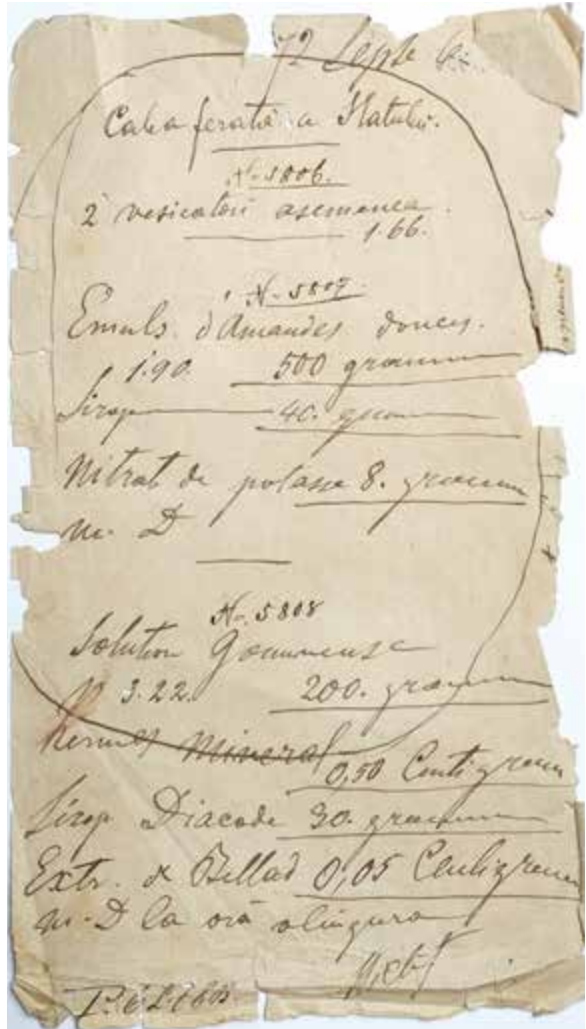 72 Septe
Calea ferată a Statului.
N. 5806.
2 vesicatori asemenea.
1.66.
N. 5807.
Emuls. d'Amandes douces.
1.90. 500 gramm
Sirop 40. gram
Nitrat de potasse 8. gramm
M. D
N. 5808
Solution Gommeuse
3.22. 200. gramm
Kermes Mineral
0,50 Centigramm
Sirop Diacode 30. gramm
Extr. de Bellad 0,05 Centigramm
M. D la oră o lingură